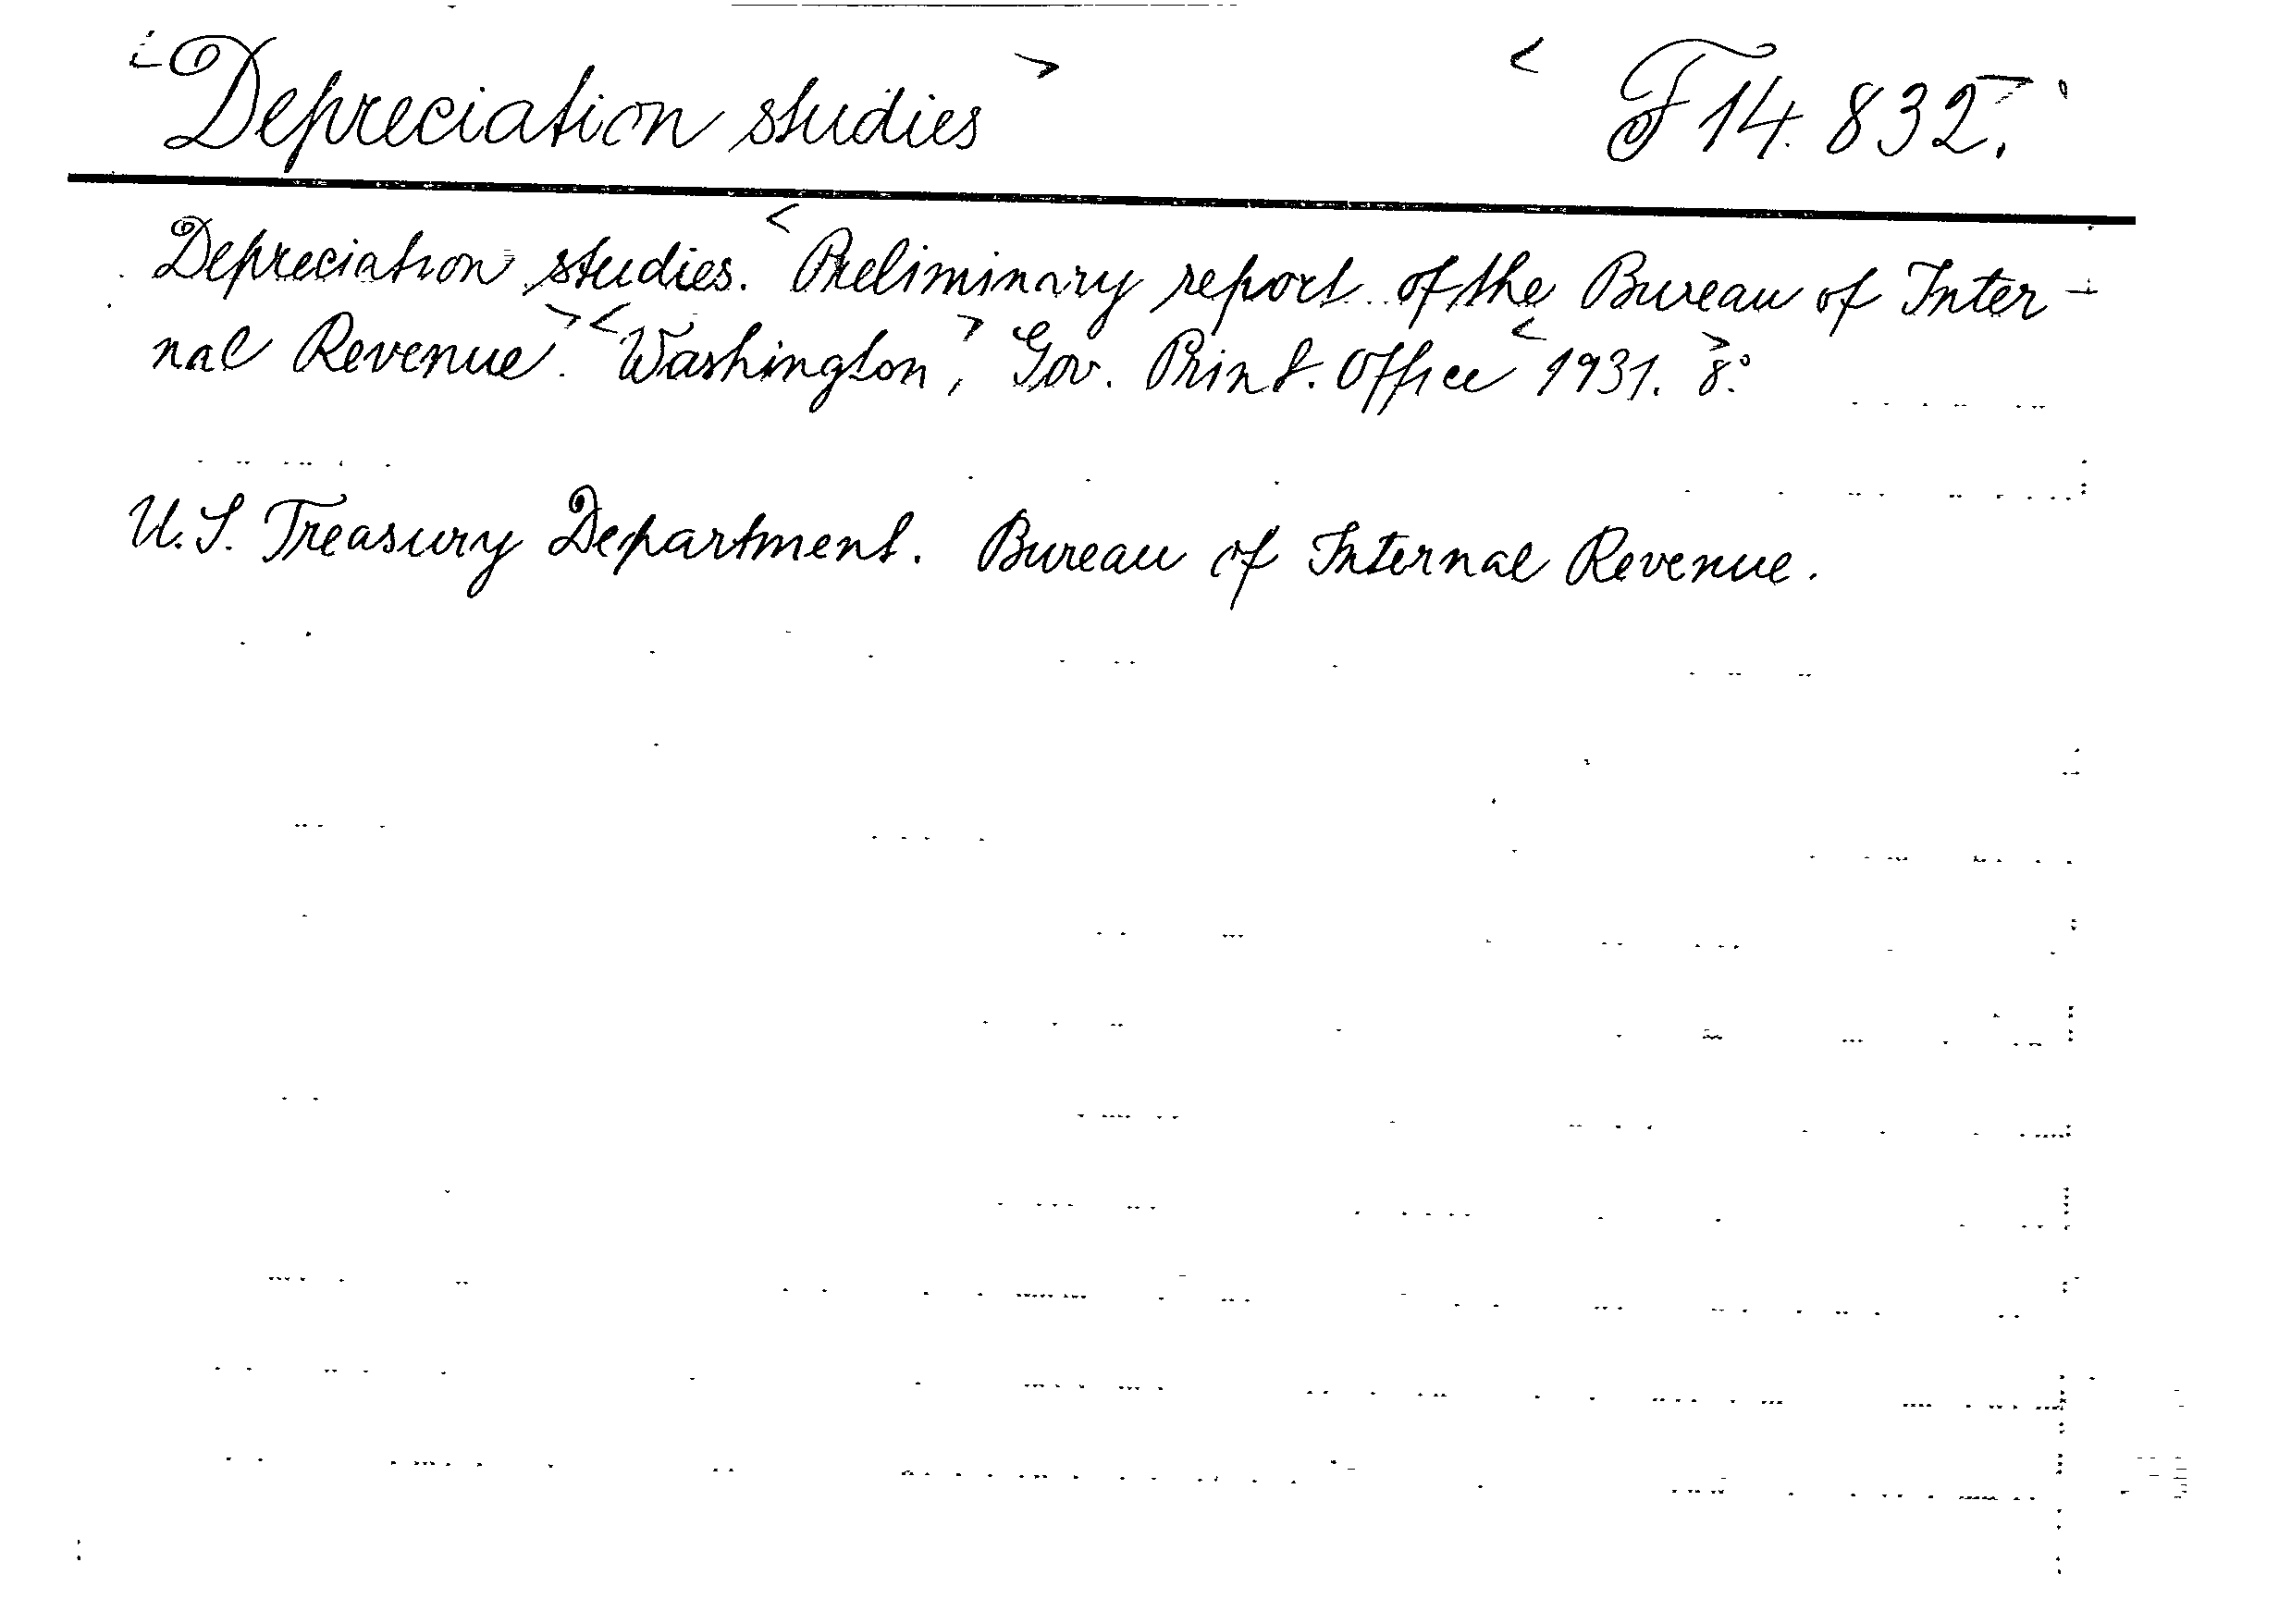 <Depreciation studies> <F 14. 832.>
Depreciation studies. <Preliminary report of the Bureau of Inter-
nal Revenue>. <Washington>, Gov. Print. Office <1931. > 8.°
U.S. Treasury Department. Bureau of Internal Revenue.